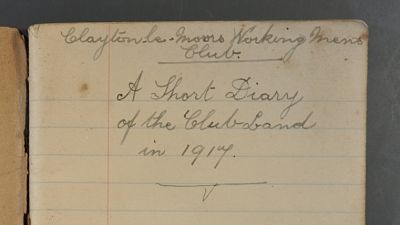 Clayton-le-Moors Working Mens
Club.
A Short Diary
of the Club Land
in 1917.